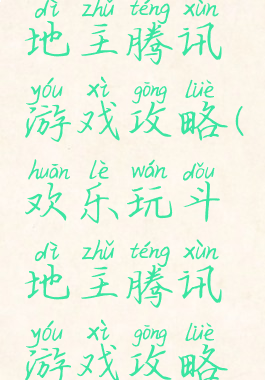 dì zhǔ téng xùn
地主腾讯
yóu xì gōng lüè
游戏攻略(
huān lè wán dǒu
欢乐玩斗
dì zhǔ téng xùn
地主腾讯
yóu xì gōng lüè
游戏攻略